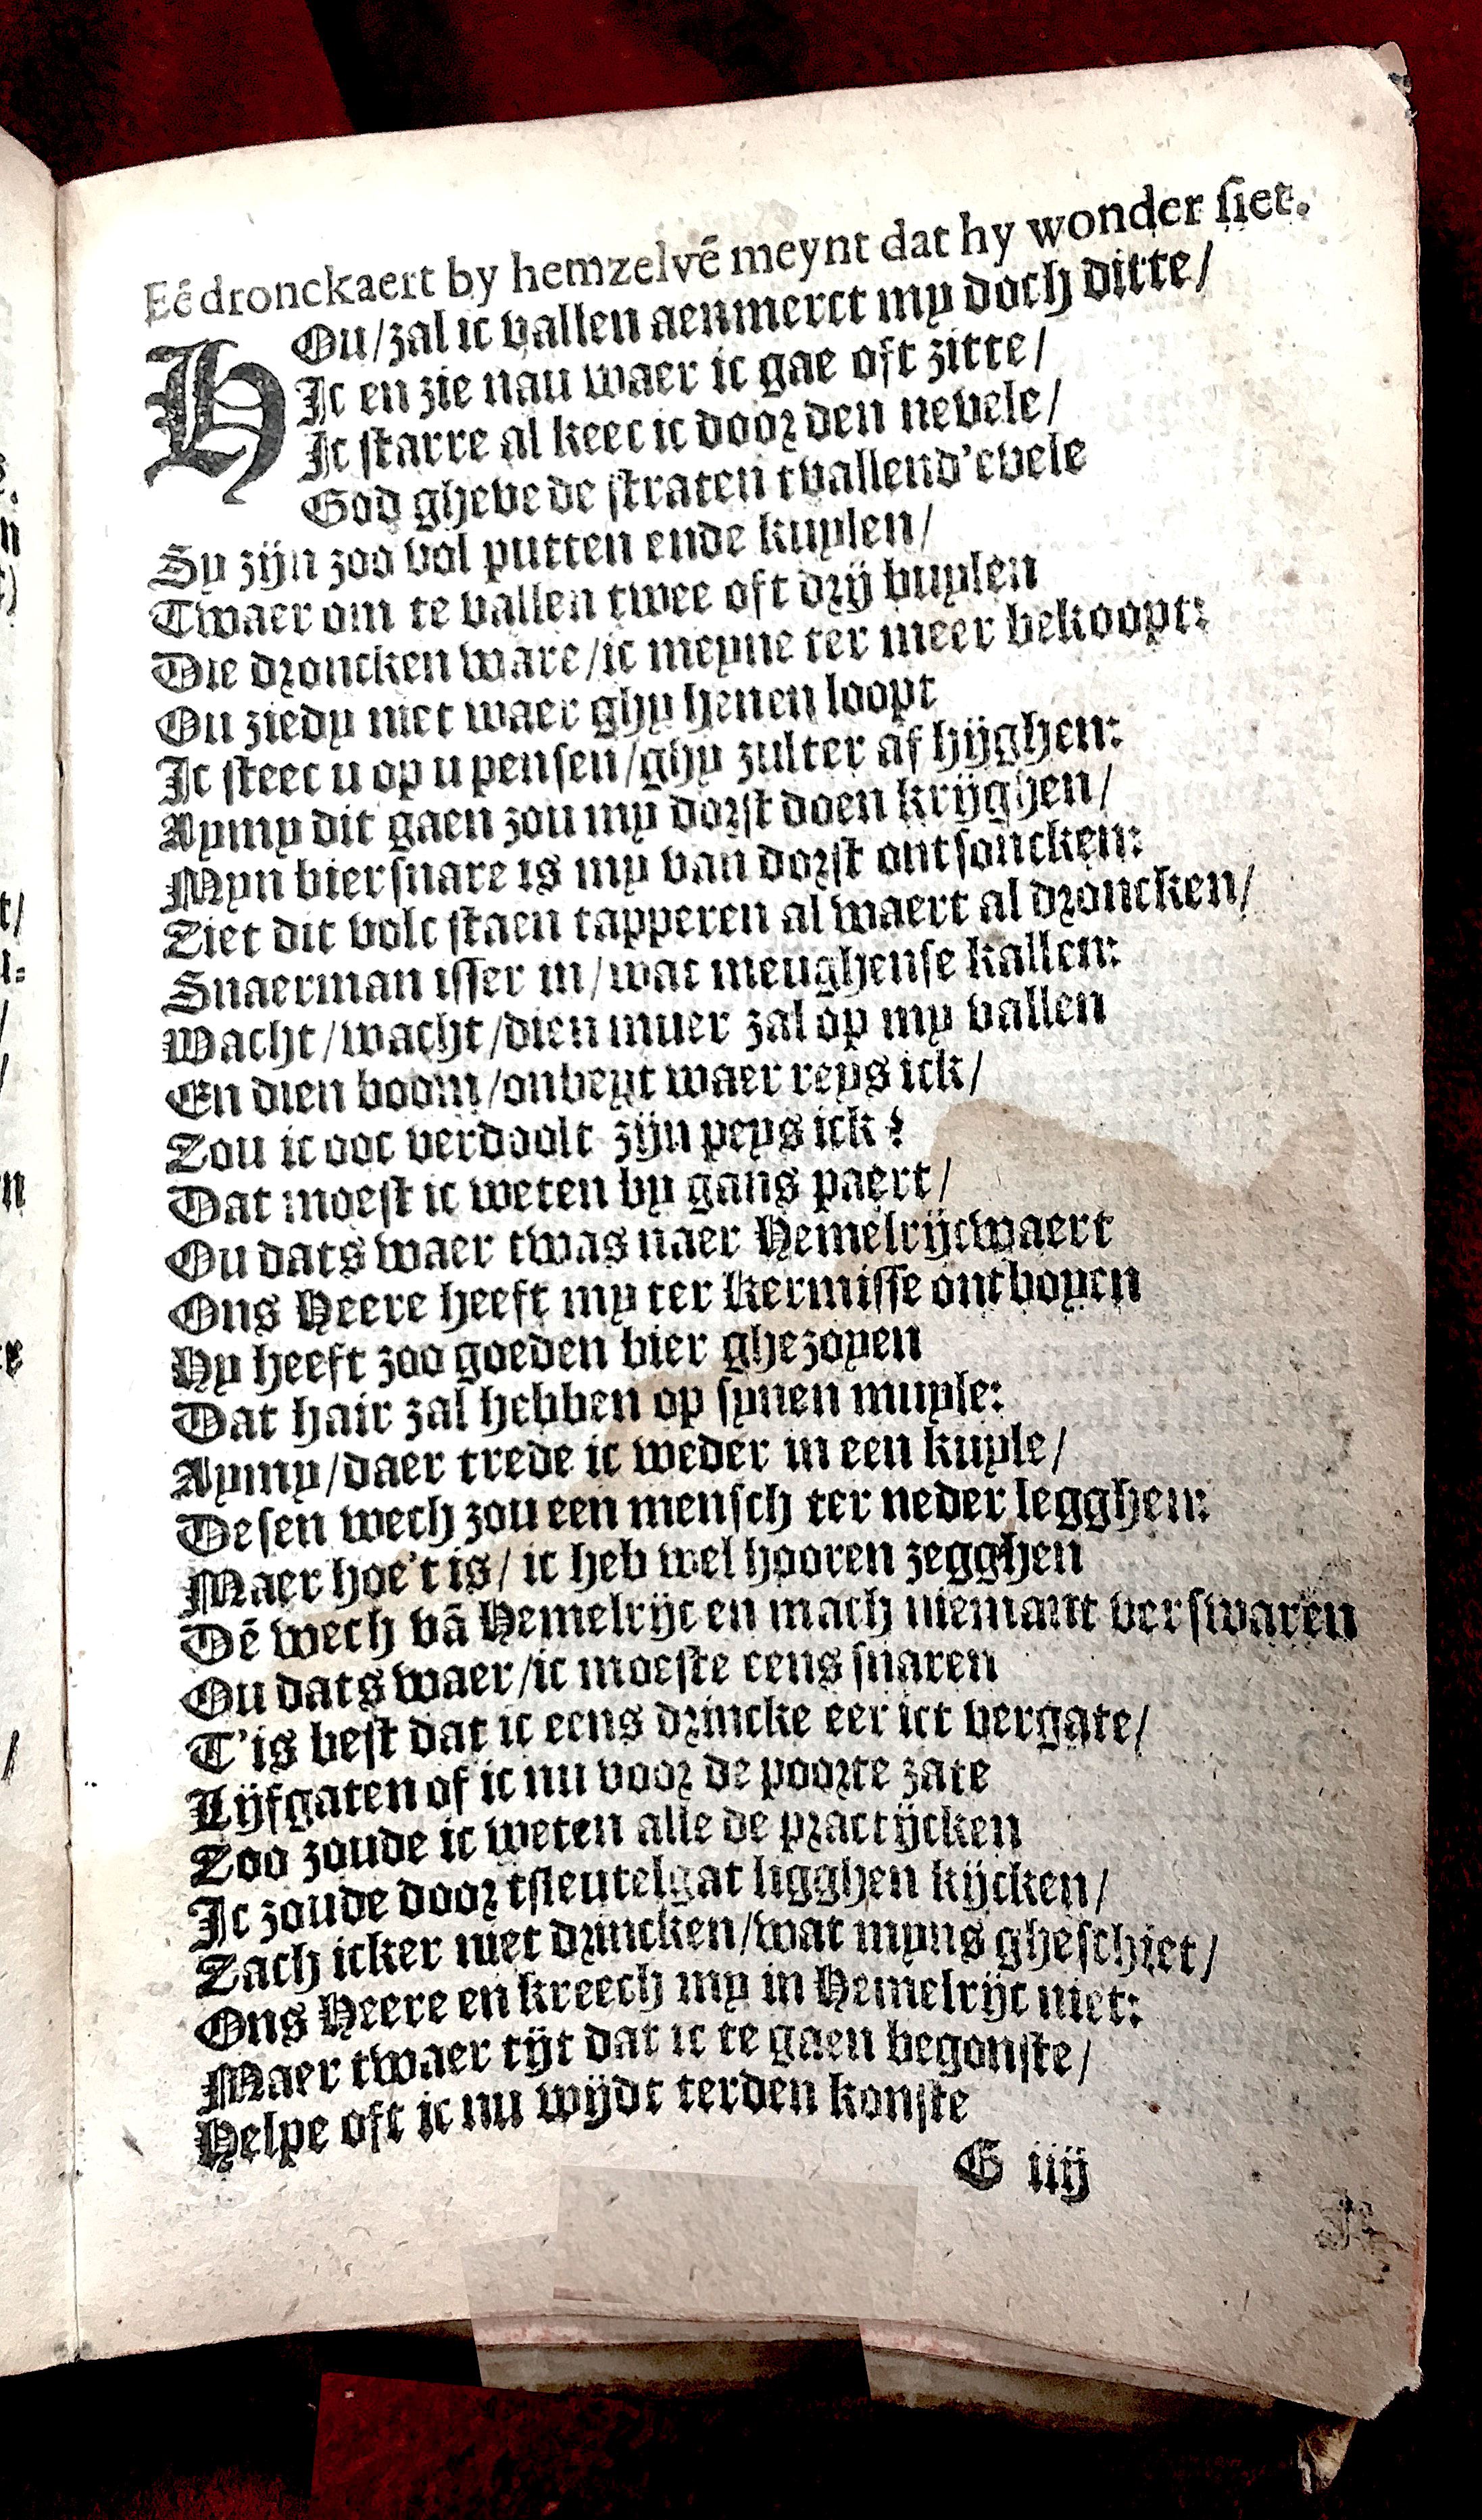 Eē dronckaert by hemzelvē meynt dat hy wonder siet.
HOu/zal ic vallen aenmerct my doch ditte/
Ic en zie nau waer ic gae oft zitte/
Ic starre al keec ic door den nevele/
God gheve de straten tvallend'evele
Sy zijn zoo vol putten ende kuylen/
Twaer om te vallen twee oft drij buylen
Die droncken ware/ic meyne ter meer bekoopt:
Ou ziedy niet waer ghy henen loopt
Ic steec u op u pensen/ghy zulter af hijghen:
Aymy dit gaen zou my dorst doen krijghen/
Myn biersnare is my van dorst ontsoncken:
Ziet dit volc staen tapperen al waert al droncken/
Snaerman isser in/wat meughense kallen:
Wacht/wacht/dien muer zal op my vallen
En dien boom/onbeyt waer reys ick/
Zou ic ooc verdoolt zijn peys ick?
Dat moest ic weten by gans paert/
Ou dats waer twas naer Hemelrijcwaert
Ons Heere heeft my ter kermisse ontboyen
Hy heeft zoo goeden bier ghezoyen
Dat hair zal hebben op synen muyle:
Aymy/daer trede ic weder in een kuyle/
Desen wech zou een mensch ter neder legghen:
Maer hoe't is/ic heb wel hooren zegghen
Dē wech vā Hemelrijc en mach niemant verswaren
Ou dats waer/ic moeste eens snaren
T'is best dat ic eens drincke eer ict vergate/
Lijfgaten of ic nu voor de poorte zate
Zoo zoude ic weten alle de practijcken
Ic zoude door tsleutelgat ligghen kijcken/
Zach icker niet drincken/wat myns gheschiet/
Ons Heere en kreech my in Hemelrijc niet:
Maer twaer tijt dat ic te gaen begonste/
Helpe oft ic nu wijdt terden konste
G iij